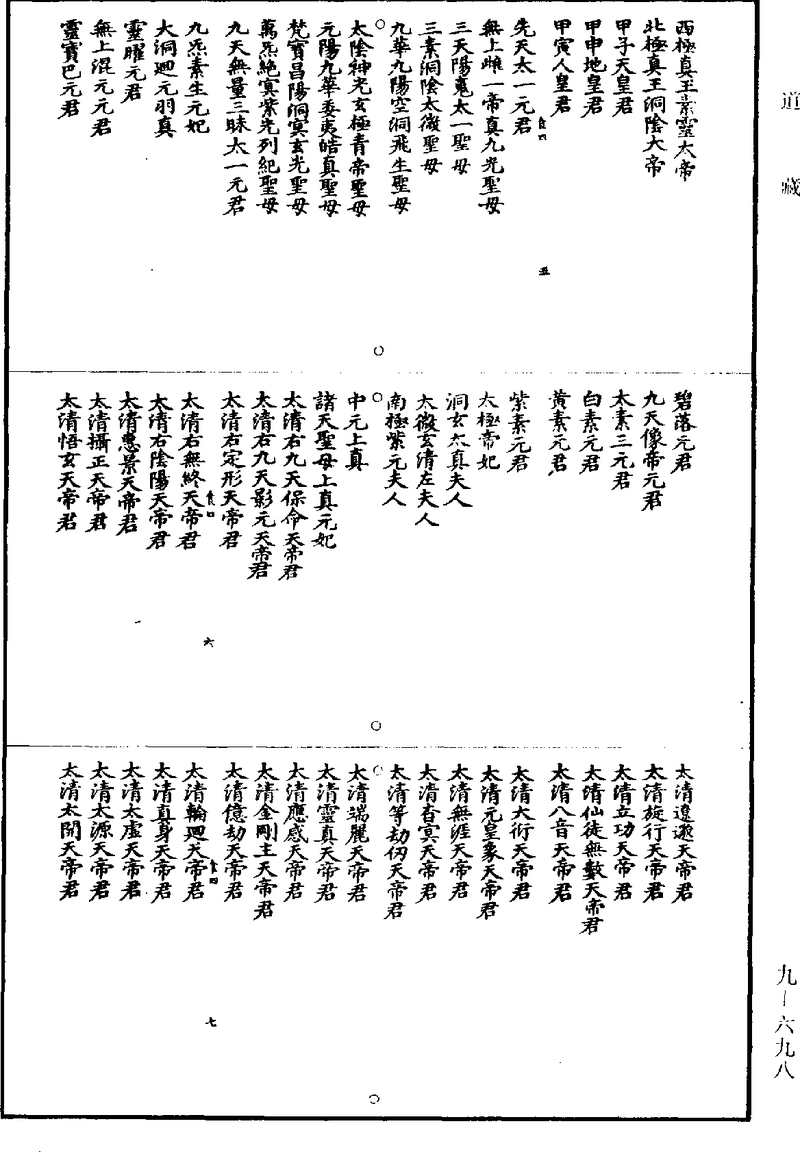 道藏
西極真王素靈太帝
北極真王洞陰大帝
甲子天皇君
甲申地皇君
甲寅人皇君
先天太一元君
無上雌一帝真九光聖母
三天陽嵬太一聖母
三素洞陰太微聖母
九華九陽空洞飛生聖母
太陰神光玄極青帝聖母
元陽九華委夷皓真聖母
梵寶昌陽洞冥玄光聖母
萬炁絶冥紫光列紀聖母
九天無量三昧太一元君
九炁素生元妃
大洞迴元羽真
靈曜元君
無上混元元君
靈寶巴元君
五
碧落元君
九天像帝元君
太素三元君
白素元君
黃素元君
紫素元君
太極帝妃
洞玄太真夫人
太微玄清左夫人
南極紫元夫人
中元上真
諸天聖母上真元妃
太清右九天保命天帝君
太清右九天影元天帝君
太清右定形天帝君
太清右無終天帝君
太清右陰陽天帝君
太清惠景天帝君
太清攝正天帝君
太清悟玄天帝君
六
太清遼邈天帝君
太清旋行天帝君
太清立功天帝君
太清仙徒無數天帝君
太清八音天帝君
太清大術天帝君
太清元皇象天帝君
太清無涯天帝君
太清杳冥天帝君
太清等劫仞天帝君
太清端麗天帝君
太清靈真天帝君
太清應感天帝君
太清金剛主天帝君
太清億劫天帝君
太清輪迴天帝君
太清真身天帝君
太清太虛天帝君
太清太源天帝君
太清太開天帝君
七
九—六九八